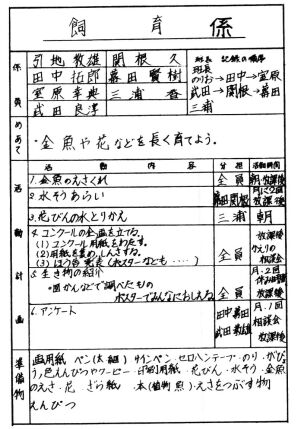 飼育係
係員
引地教雄 関根久
田中拓郎 喜田賢樹
室原幸典 三浦香
武田良淳
班長 記録の順序
班長
のりお→田中→室原
武田→関根→喜田
三浦
めあて
・金魚や花などを長く育てよう。
活動計画
活動内容 分担 活動時間
1.金魚のえさくれ 全員 朝・放課後
2.水そうあらい 喜田関根 月に2回放課後
3.花びんの水とりかえ 三浦 朝
4.コンクールの企画を立てる。
(1)コンクール用紙をわたす。
(2)用紙を集め、しんさする。
(3)はっ表(ポスターなども・・・・) 全員 放課後
かえりの相談会
5.生き物の紹介
・図かんなどで調べたもの
ポスターでみんなにおしえる。 全員 月・2回
休み時間
放課後
6.アンケート 田中喜田 月・1回
相談会
放課後
準備物
画用紙 ペン(太細) サインペン・セロハンテープ・のり・がびょう
色えんぴつ 印刷用紙・花びん・水そう・金魚
のえさ・花・ざら紙・本(植物魚)・えさをつぶす物
えんぴつ